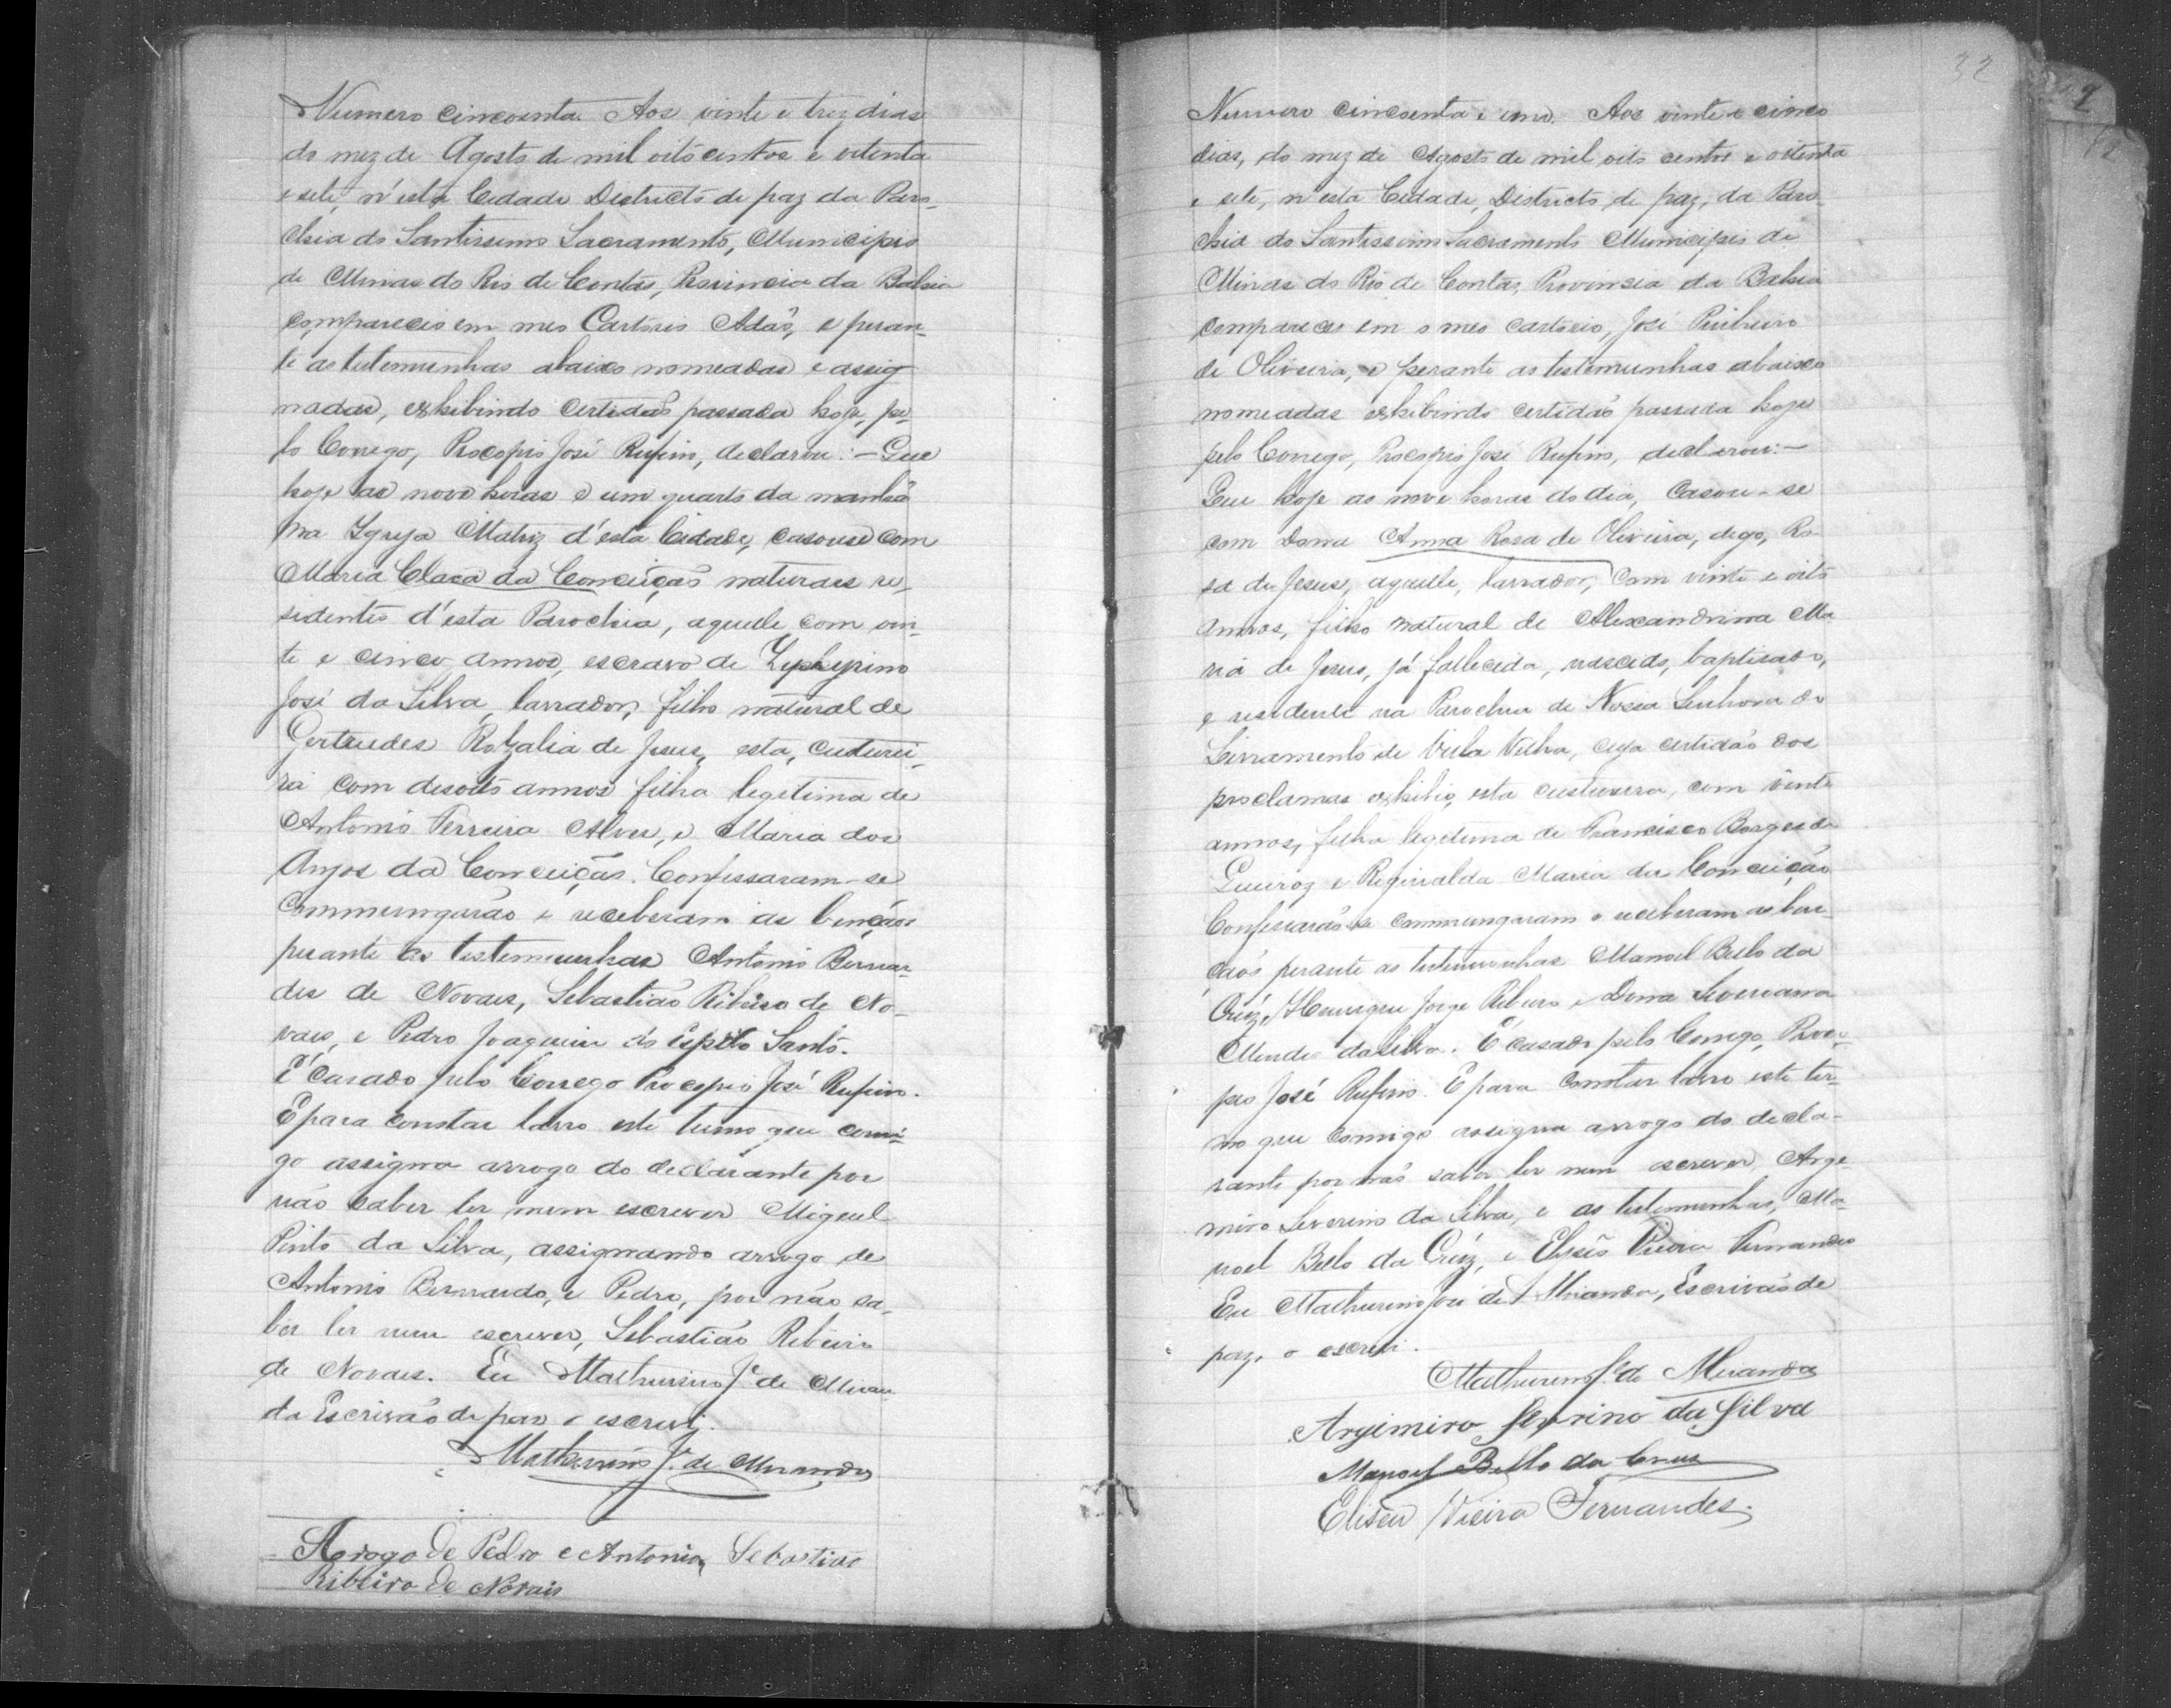 Numero cincoenta. Aos vinte e trez dias
do mez de Agosto de mil oitocentos e oitenta
e sete, n'esta Cidade Districto de paz da Paro-
chia do Santissimo Sacramento, Municipio
de Minas do Rio de Contas, Provincia da Bahia
compareceo em meo Cartorio Adaõ, e peran-
te as testemunhas abaixo nomeadas e assig
nadas, exhibindo certidaõ passada hoje, pe-
lo Conego, Procopio José Rufino, declarou: — Que
hoje as nove horas e um quarto da manhã
na Igreja Matriz d'esta Cidade, casouse com
Maria Clara da Conceiçaõ naturaes re-
sidentes d'esta Parochia, aquelle com vin-
te e cinco annos, escravo de Zepherino
José da Silva, lavrador, filho natural de
Gertrudes Rozalia de Jesus, esta, custurei-
ra com desoito annos filha legitima de
Antonio Ferreira Alves, e Maria dos
Anjos da Conceição. Confessaram-se
Commungarão e receberam as bençãos
perante as testemunhas Antonio Bernar-
des de Novaes, Sebastião Ribeiro de No-
vaes, e Pedro Joaquim do Espito Santo.
É casado pelo Conego Procopio José Rufino.
E para constar lavro este termo que comi-
go assigna arrogo do declarante por
não saber ler nem escrever Miguel
Pinto da Silva, assignando arrogo de
Antonio Bernardo, e Pedro, por não sa-
ber ler nem escrever, Sebastião Ribeiro
de Novaes. Eu Mathurino Je. de Miran-
da Escrivão de paz o escrevi.
Mathurino Je. de Miranda
Arogo de Pedro e Antonio, Sebastião
Ribeiro de Novais
32
Numero cincoenta e um. Aos vinte e cinco
dias, do mez de Agosto de mil oito centos e oitenta
e sete, n'esta Cidade, Districto de paz, da Paro-
chia do Santissimo Sacramento Municipio de
Minas do Rio de Contas, Provincia da Bahia
compareceo em o meo cartorio, José Pinheiro
de Oliveira, e perante as testemunhas abaixo
nomeadas exhibindo certidaõ passada hoje
pelo Conego, Procopio José Rufino, declarou: —
Que hoje as nove horas do dia, casou-se
com Dona Anna Rosa de Oliveira, digo, Ro-
sa de Jesus, aquelle, lavrador, com vinte e oito
annos, filho natural de Alexandrina Ma
ria de Jesus, já fallecida, nascido, baptisado,
e residente na Parochia de Nossa Senhora do
Livramento de Villa Velha, cuja certidaõ dos
proclamas exhibio, esta custureira, com vinte
annos, filha legitima de Francisco Borges de
Queiroz e Reginalda Maria da Conceição
Confessarão-se commungaram e receberam as ben-
çaõs perante as testemunhas Manoel Bello da
Cruz, Henrique Jorge Ribeiro e Dona Severiana
Mendes da Silva. É casado pelo Conego, Proco-
pio José Rufino. E para constar lavro este ter-
mo que comigo assigna arrogo do decla-
rante por não saber ler nem escrever, Arge-
miro Severino da Silva, e as testemunhas, Ma-
noel Bello da Cruz, e Eliseo Vieira Fernandes
Eu Mathurino José de Miranda, Escrivão de
paz, o escrevi.
Mathurino Je. de Miranda
Argimiro Severino da Silva
Manoel Bello da Cruz
Eliseu Vieira Fernandes.